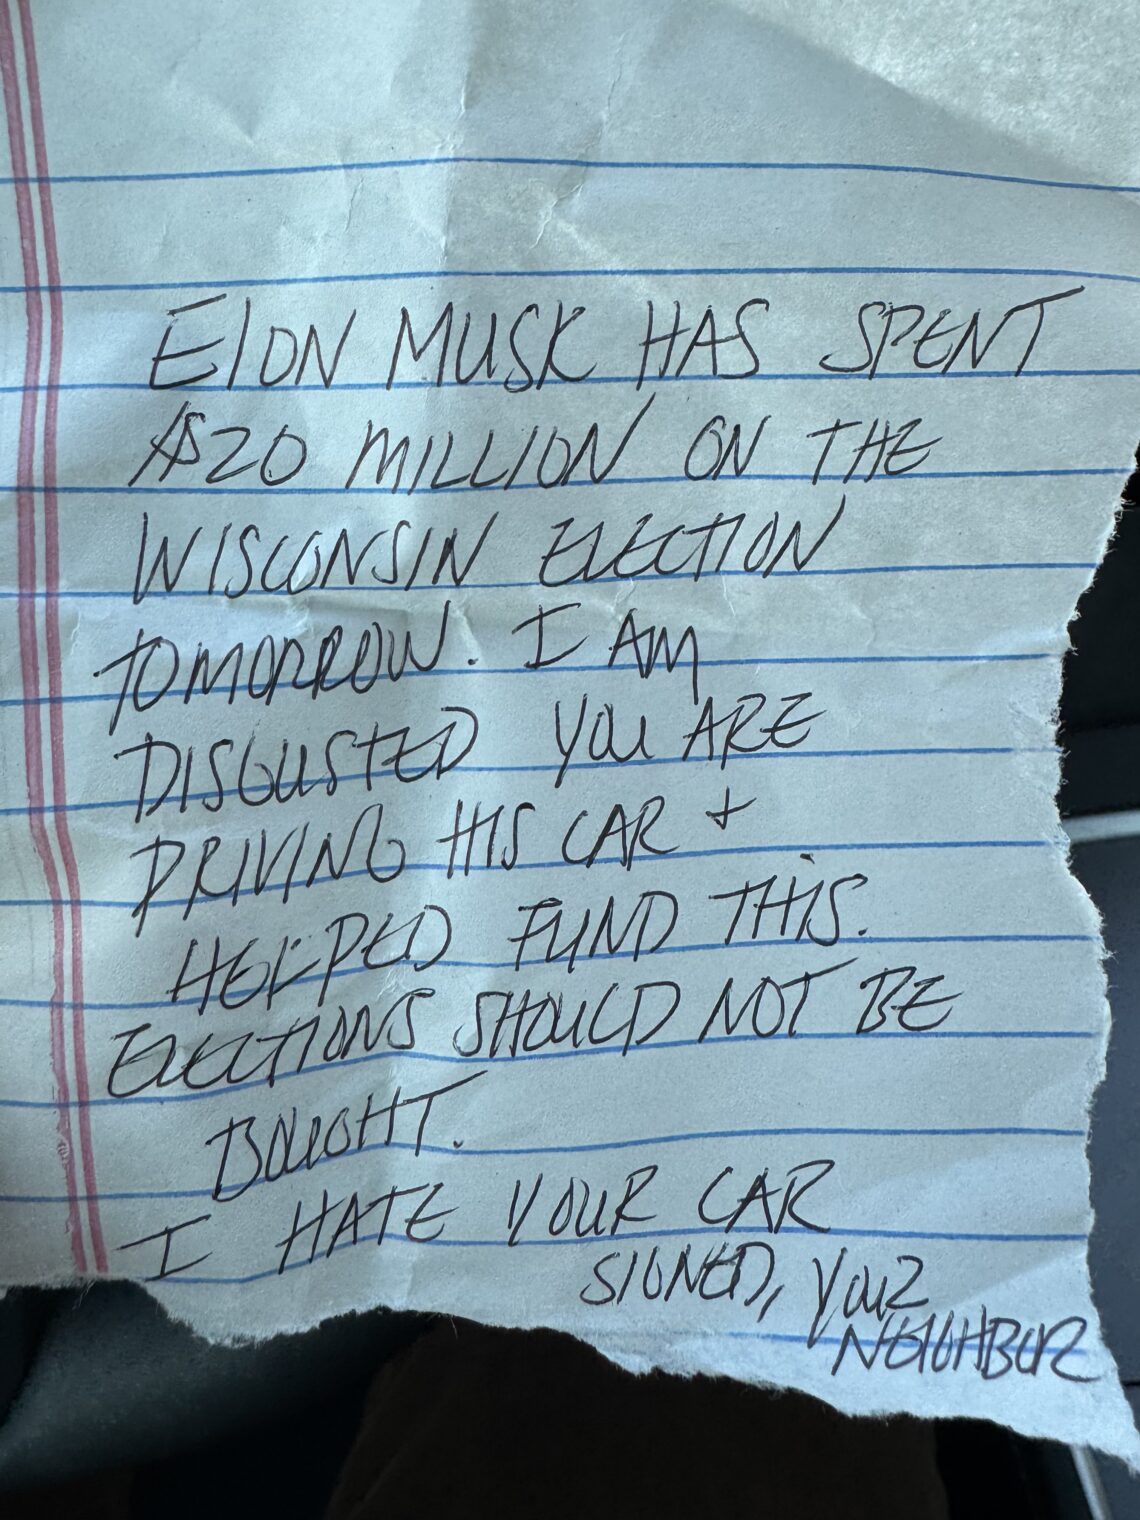 ElON MUSK HAS SPENT
$20 MILLION ON THE
WISCONSIN ELECTION
TOMORROW. I AM
DISGUSTED YOU ARE
DRIVING HIS CAR +
HELPED FUND THIS.
ELECTIONS SHOULD NOT BE
BOUGHT.
I HATE YOUR CAR
SIGNED, YOUR
NEIGHBOR